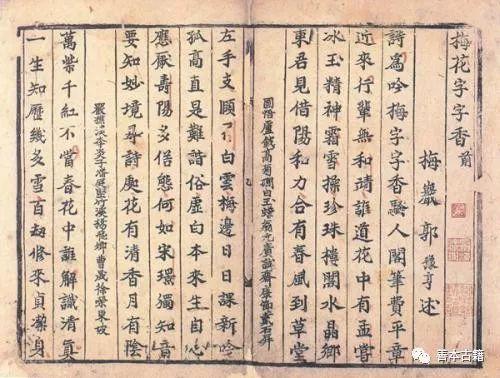 梅花字字香 前
梅巖郭豫亨述
詩爲吟梅字字香騷人閣筆費平章
近來行輩無和靖誰道花中有孟嘗
冰玉精神霜雪操珍珠樓閣水晶鄉
東君見借陽和力合有春風到草堂
圓悟盧鉞高菊磵白玉蟾翁元廣誠齋石屏
左手支頤白雲梅邊日日課新吟
孤高直是難諧俗虛白本來生自心
應厭壽陽多俗態何如宋璟獨知音
要知妙境尋詩處花有清香月有陰
竹溪楊飛卿曹東坡
萬紫千紅不當春花中誰解識清真
一生知歷幾多雪百劫修來貞潔身
善本古籍